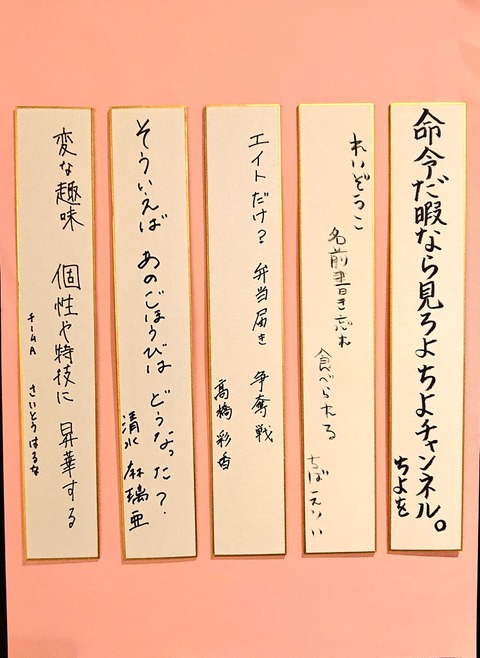 命令だ暇なら見ろよちよチャンネル。
ちよを
れいぞうこ
名前書き忘れ
食べられる
ちばえりい
エイトだけ？ 弁当届き 争奪戦
高橋 彩香
そういえば あのごほうびは どうなった？
清水 麻璃亜
変な趣味 個性や特技に 昇華する
チームA さいとうはるな